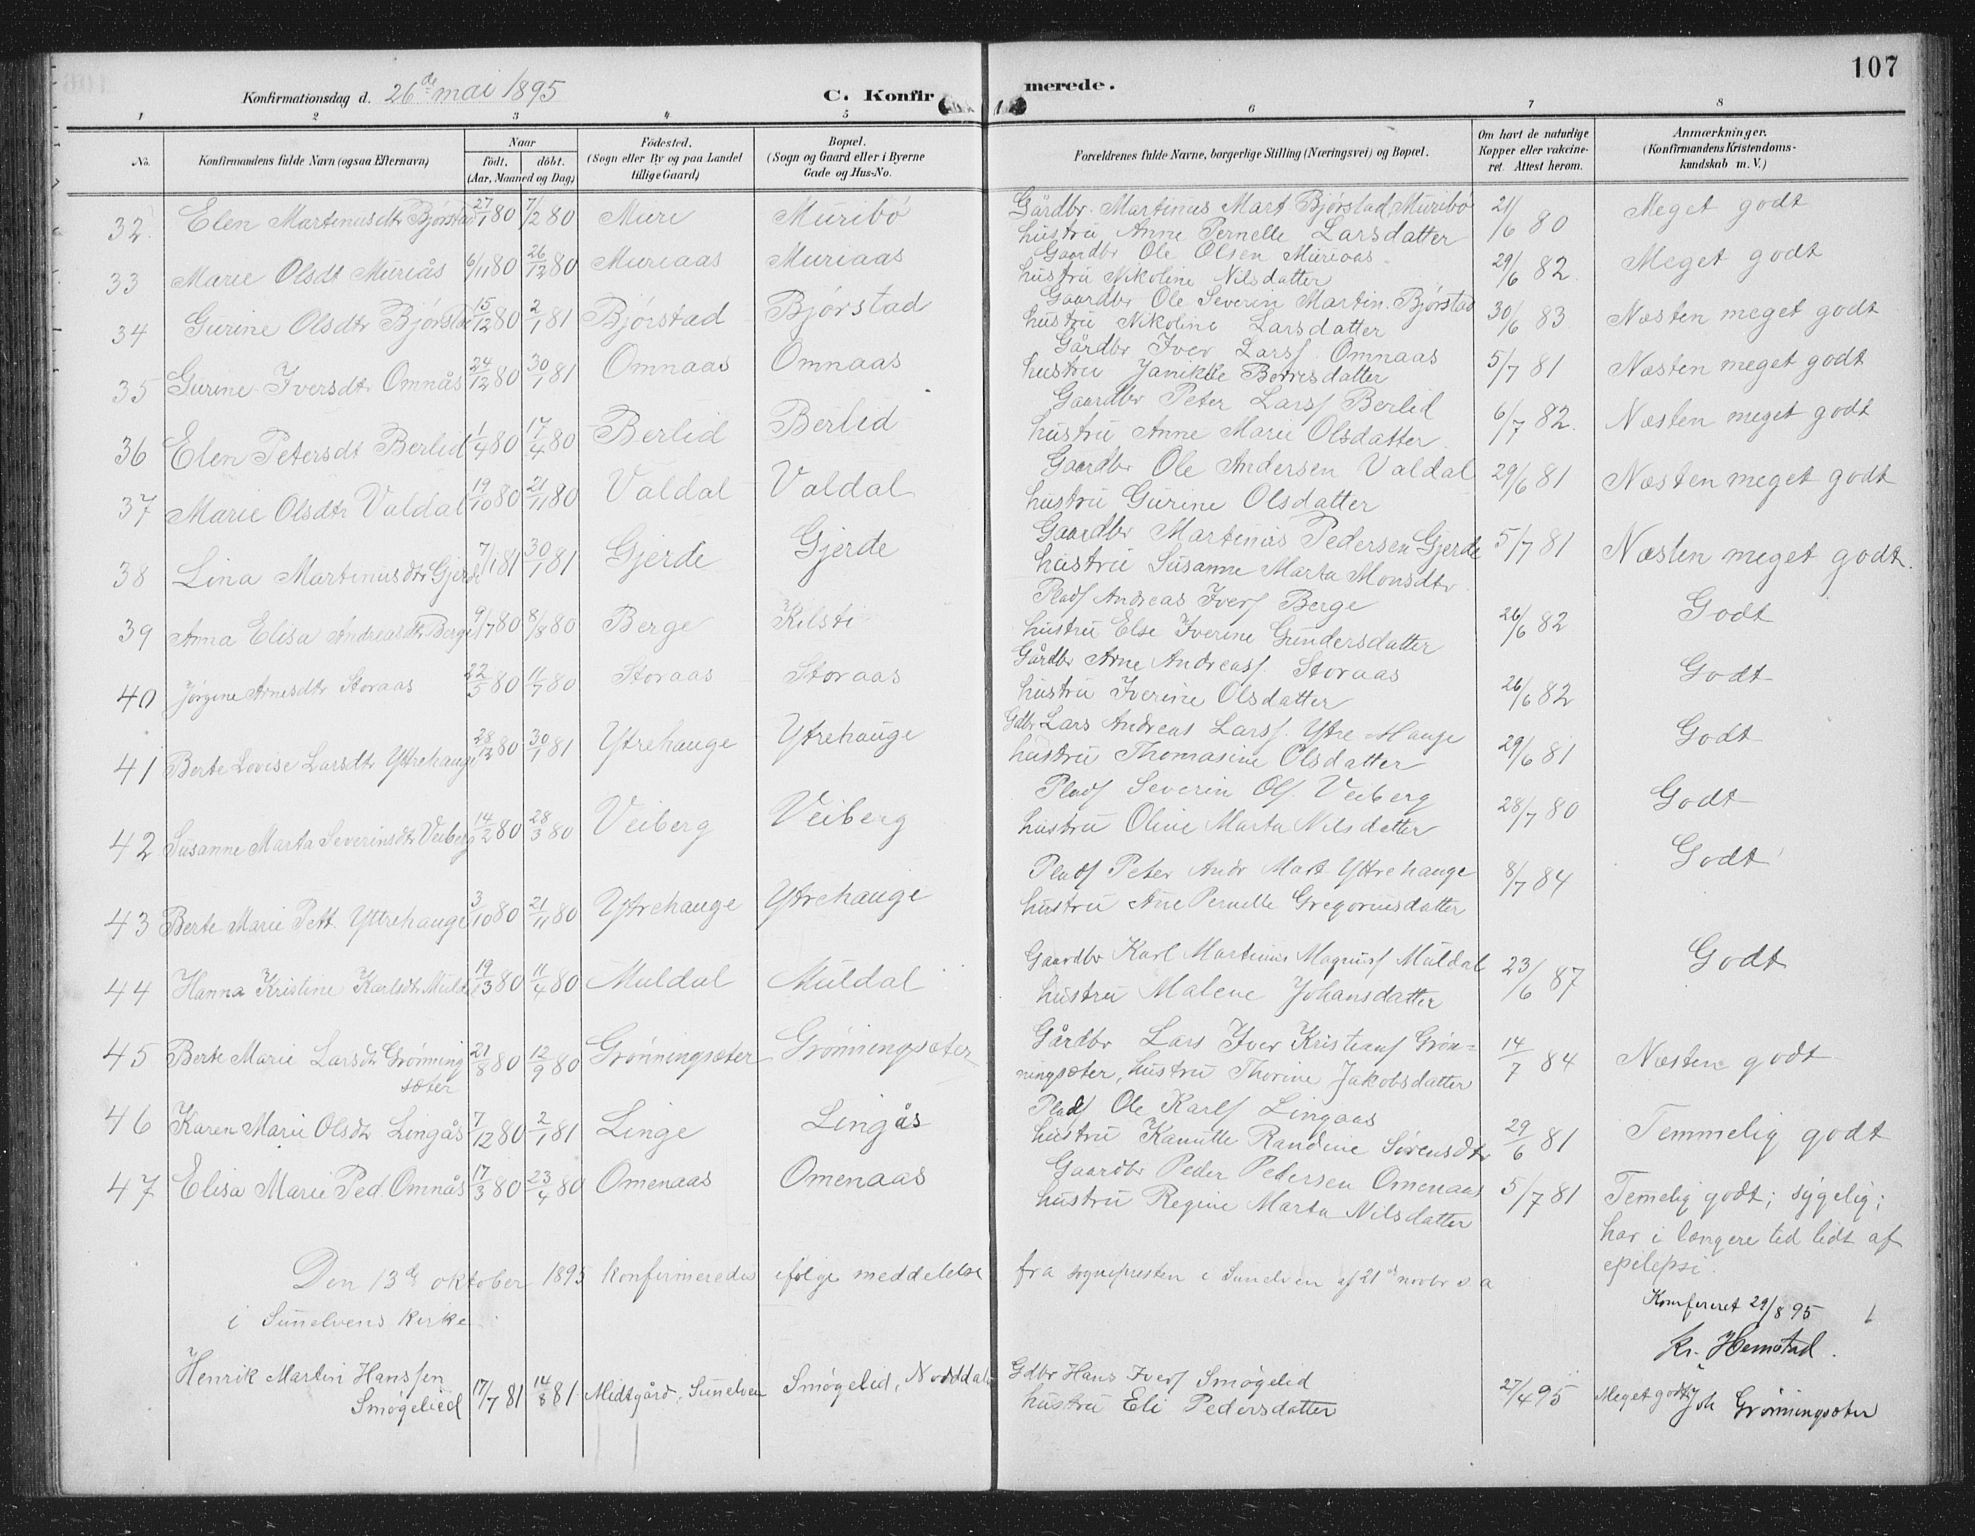 107
Konfirmationsdag d. 26de mai 1895
C. Konfirmerede.
1 2 3 4 5 6 7 8
No. Konfirmandens fulde Navn (ogsaa Efternavn) Naar født, døbt. (Aar, Maaned og Dag) Fødested. (Sogn eller By og paa Landet tillige Gaard) Bopæl. (Sogn og Gaard eller i Byerne Gade og Hus-No. Forældrenes fulde Navne, borgerlige Stilling (Næringsvei) og Bopæl. Om havt de naturlige Kopper eller vakcineret. Attest herom. Anmærkninger. (Konfirmandens Kristendomskundskab m. V.)
32. Elen Martinusdtr Bjørstad 27/1 80 7/2 80 Muri Muribø Gårdbr. Martinus Mart Bjørstad, Muribø 21/6 80 Meget godt
hustru Anne Pernelle Larsdatter
33 Marie Olsdt Muriås 6/11 80 26/12 80 Muriaas Muriaas Gaardbr Ole Olsen Muriaas 29/6 82. Meget godt
hustru Nikoline Nilsdatter
34 Gurine Olsdtr Bjørstad 15/12 80 2/1 81 Bjørstad Bjørstad Gaardbr Ole Severin Martin. Bjørstad 30/6 83 Næsten meget godt
hustru Nikoline Larsdatter
35 Gurine Iversdtr Omnås 24/12 80 30/1 81 Omnaas Omnaas Gårdbr Iver Larss Omnaas 5/7 81 Næsten meget godt
hustru Janikke Berresdatter
36 Elen Petersdt Berlid 1/4 80 17/4 80 Berlid Berlid Gaardbr Peter Larss Berlid 6/7 82. Næsten meget godt
hustru Anne Marie Olsdatter
37 Marie Olsdtr Valdal 19/10 80 21/11 80 Valdal Valdal Gaardbr Ole Andersen Valdal 29/6 81 Næsten meget godt
hustru Gurine Olsdatter
38 Lina Martinusdtr Gjerde 7/1 81 30/1 81 Gjerde Gjerde Gaardbr Martinus Pedersen Gjerde 5/7 81 Næsten meget godt.
hustru Susanne Marta Monsdtr
39 Anna Elisa Andreasdtr Berge 9/7 80 8/8 80 Berge Kilsti Plads Andreas Ivers Berge 26/6 82 Godt
hustru Else Iverine Gundersdatter
40 Jørgine Arnesdtr Storaas 22/5 80 11/7 80 Storaas Storaas Gårdbr Arne Andreass Storaas 26/6 82 Godt
hustru Iverine Olsdatter
41 Berte Lovise Larsdtr Yttrehauge 28/12 80 30/1 81 Ytrehauge Ytrehauge Gdbr Lars Andreas Larss. Ytre Hauge 29/6 81 Godt
hustru Thomasine Olsdatter
42 Susanne Marta Severinsdtr Veiberg 14/2 80 28/3 80 Veiberg Veiberg Plads Severin Ols. Veiberg 28/7 80 Godt
hustru Oline Marta Nilsdatter
43 Berte Marie Pett Yttrehauge 3/10 80 21/11 80 Ytrehauge Ytrehauge Plads Peter Andr Mart Yttrehauge 8/7 84 Godt
hustru Ane Pernelle Gregoriusdatter
44 Hanna Kristine Karlsdtr Muldal 19/3 80 11/4 80 Muldal Muldal Gaardbr Karl Martinus Magnuss Muldal 23/6 87 Godt
hustru Malene Johansdatter
45 Berte Marie Larsdtr Grønning sæter 21/8 80 12/9 80 Grønningsæter Grønningsæter Gårdbr Lars Iver Kristians Grøn= 14/7 84 Næsten godt
ningsæter, hustru Thorine Jakobsdatter
46 Karen Marie Olsdtr Lingås 7/12 80 2/1 81 Linge Lingås Plads Ole Karls Lingaas 29/6 81 Temmelig godt
hustru Kanutte Randine Sørensdtr
47 Elisa Marie Ped Omnås 17/3 80 23/4 80 Omenaas Omenaas Gaardbr Peder Pedersen Omenaas 5/7 81 Temelig godt; sygelig;
hustru Regine Marta Nilsdatter har i længere tid lidt af
epilepsi.
Den 13de oktober 1895 konfirmeredes ifølge meddelelse fra sognepresten i Sunelven af 21de novbr s a
i Sunelvens kirke
Konfereret 29/8 95
Kr. Hemstad.
Henrik Martin Hanssen Smøgelied 17/7 81 14/8 81 Midtgård, Sunelven Smøgelid, Norddal Gdbr Hans Ivers Smøgelid 27/4 95 Meget godt Joh Grønningsæter
hustru Eli Pedersdatter